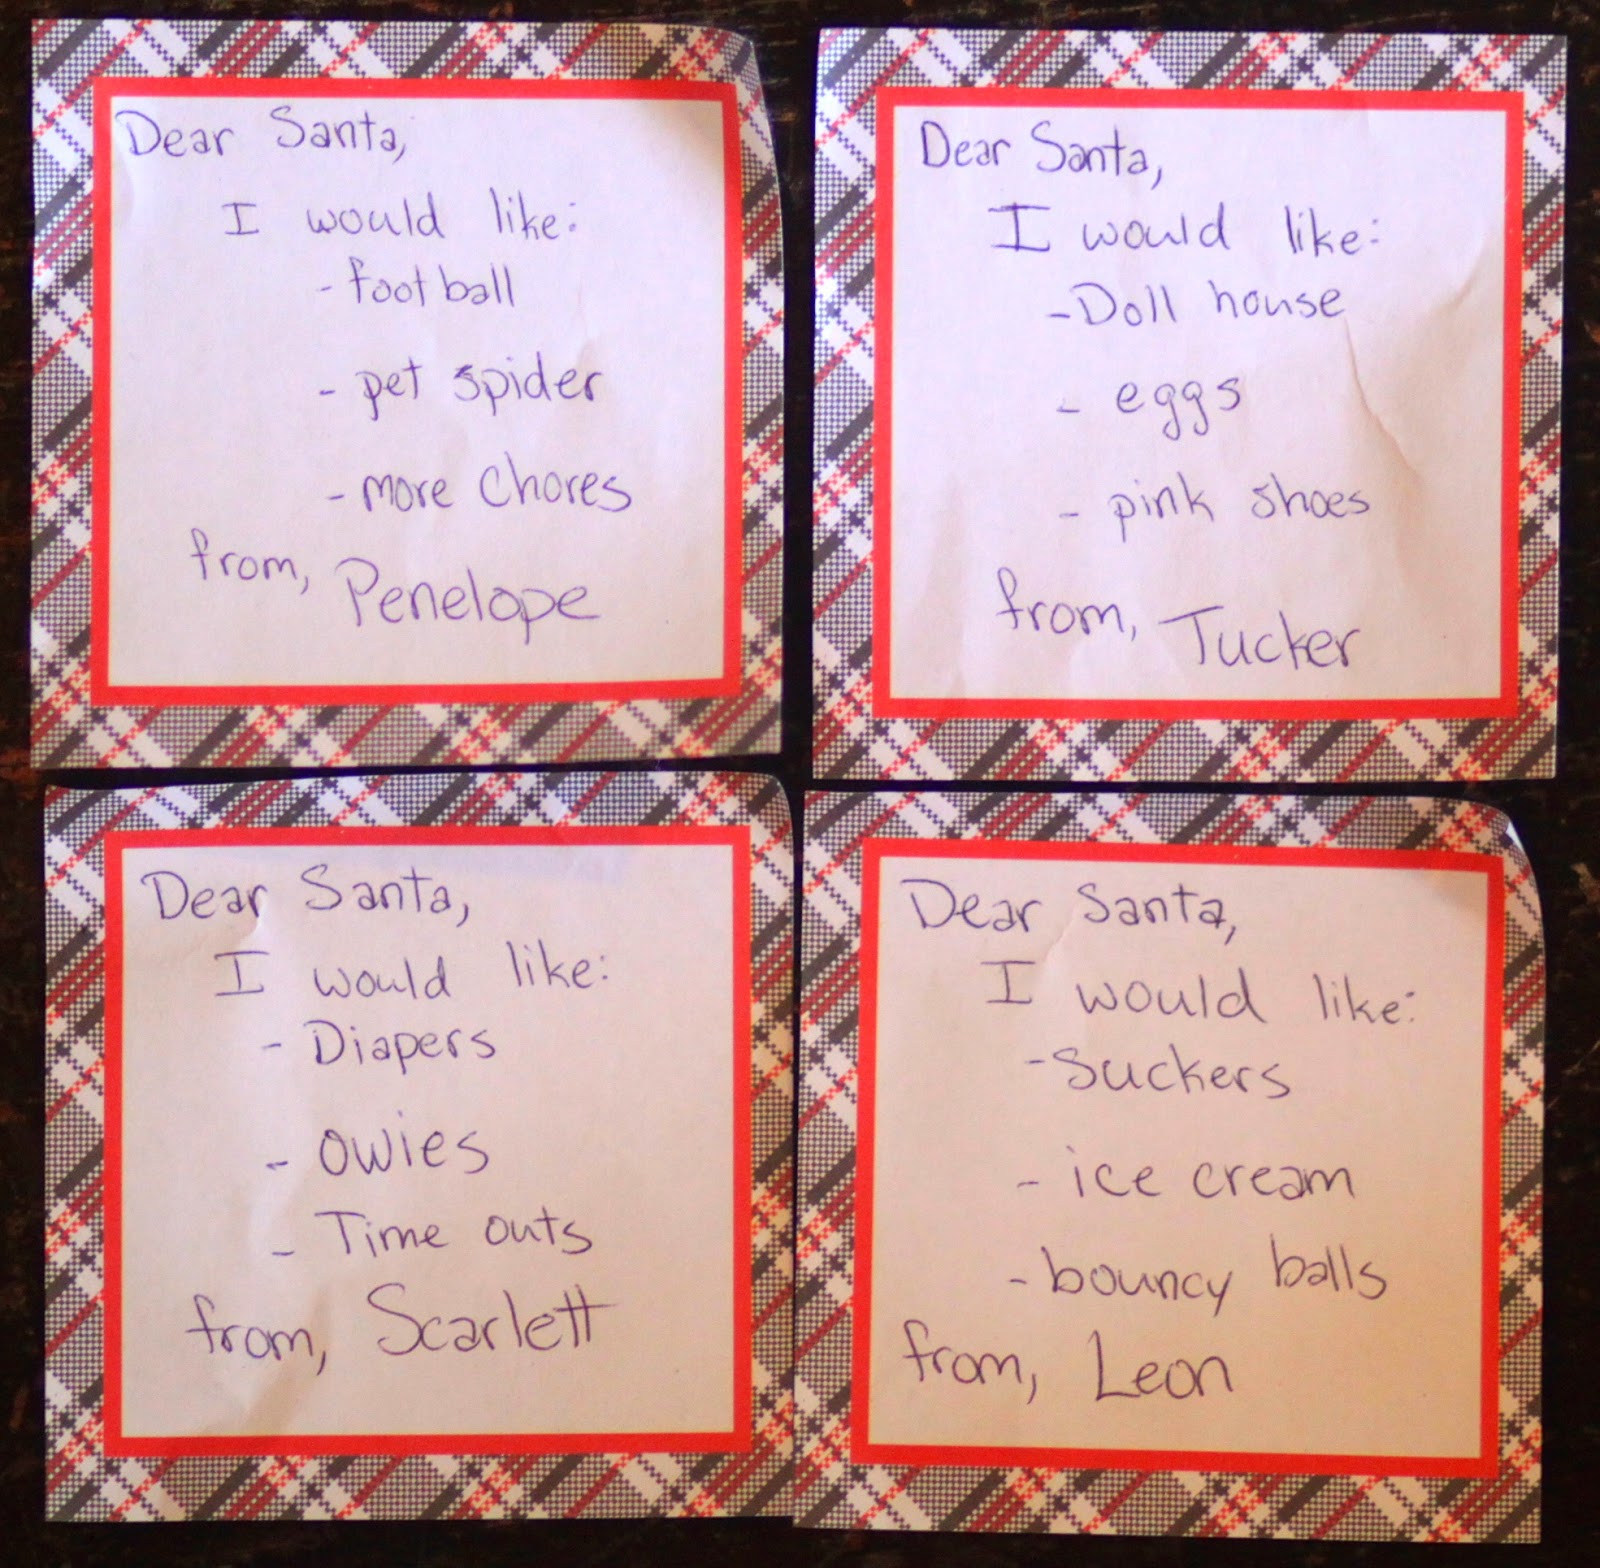 Dear Santa,
I would like:
- football
- pet spider
- more chores
from, Penelope
Dear Santa,
I would like:
- Doll house
- eggs
- pink shoes
from, Tucker
Dear Santa,
I would like:
- Diapers
- owies
- Time outs
from, Scarlett
Dear Santa,
I would like:
- Suckers
- ice cream
- bouncy balls
from, Leon